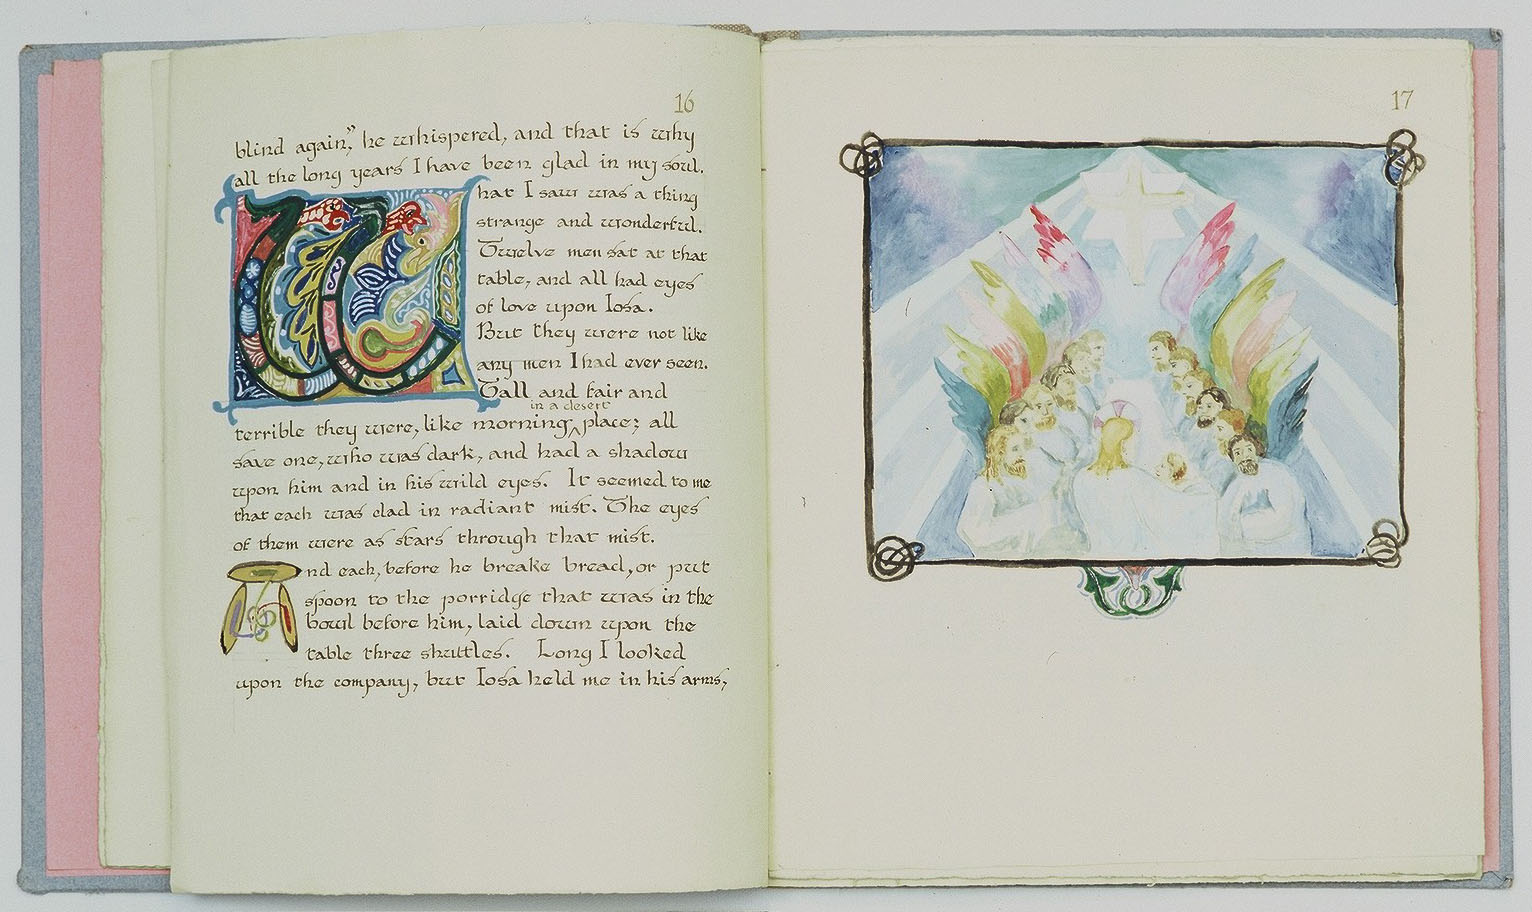 16
blind again," he whispered, and that is why
all the long years I have been glad in my soul.
What I saw was a thing
strange and wonderful.
Twelve men sat at that
table, and all had eyes
of love upon Iosa.
But they were not like
any men I had ever seen.
Tall and fair and
in a desert
terrible they were, like morning ^ place; all
save one, who was dark, and had a shadow
upon him and in his wild eyes. It seemed to me
that each was clad in radiant mist. The eyes
of them were as stars through that mist.
And each, before he breake bread, or put
spoon to the porridge that was in the
bowl before him, laid down upon the
table three shuttles. Long I looked
upon the company, but Iosa held me in his arms,
17